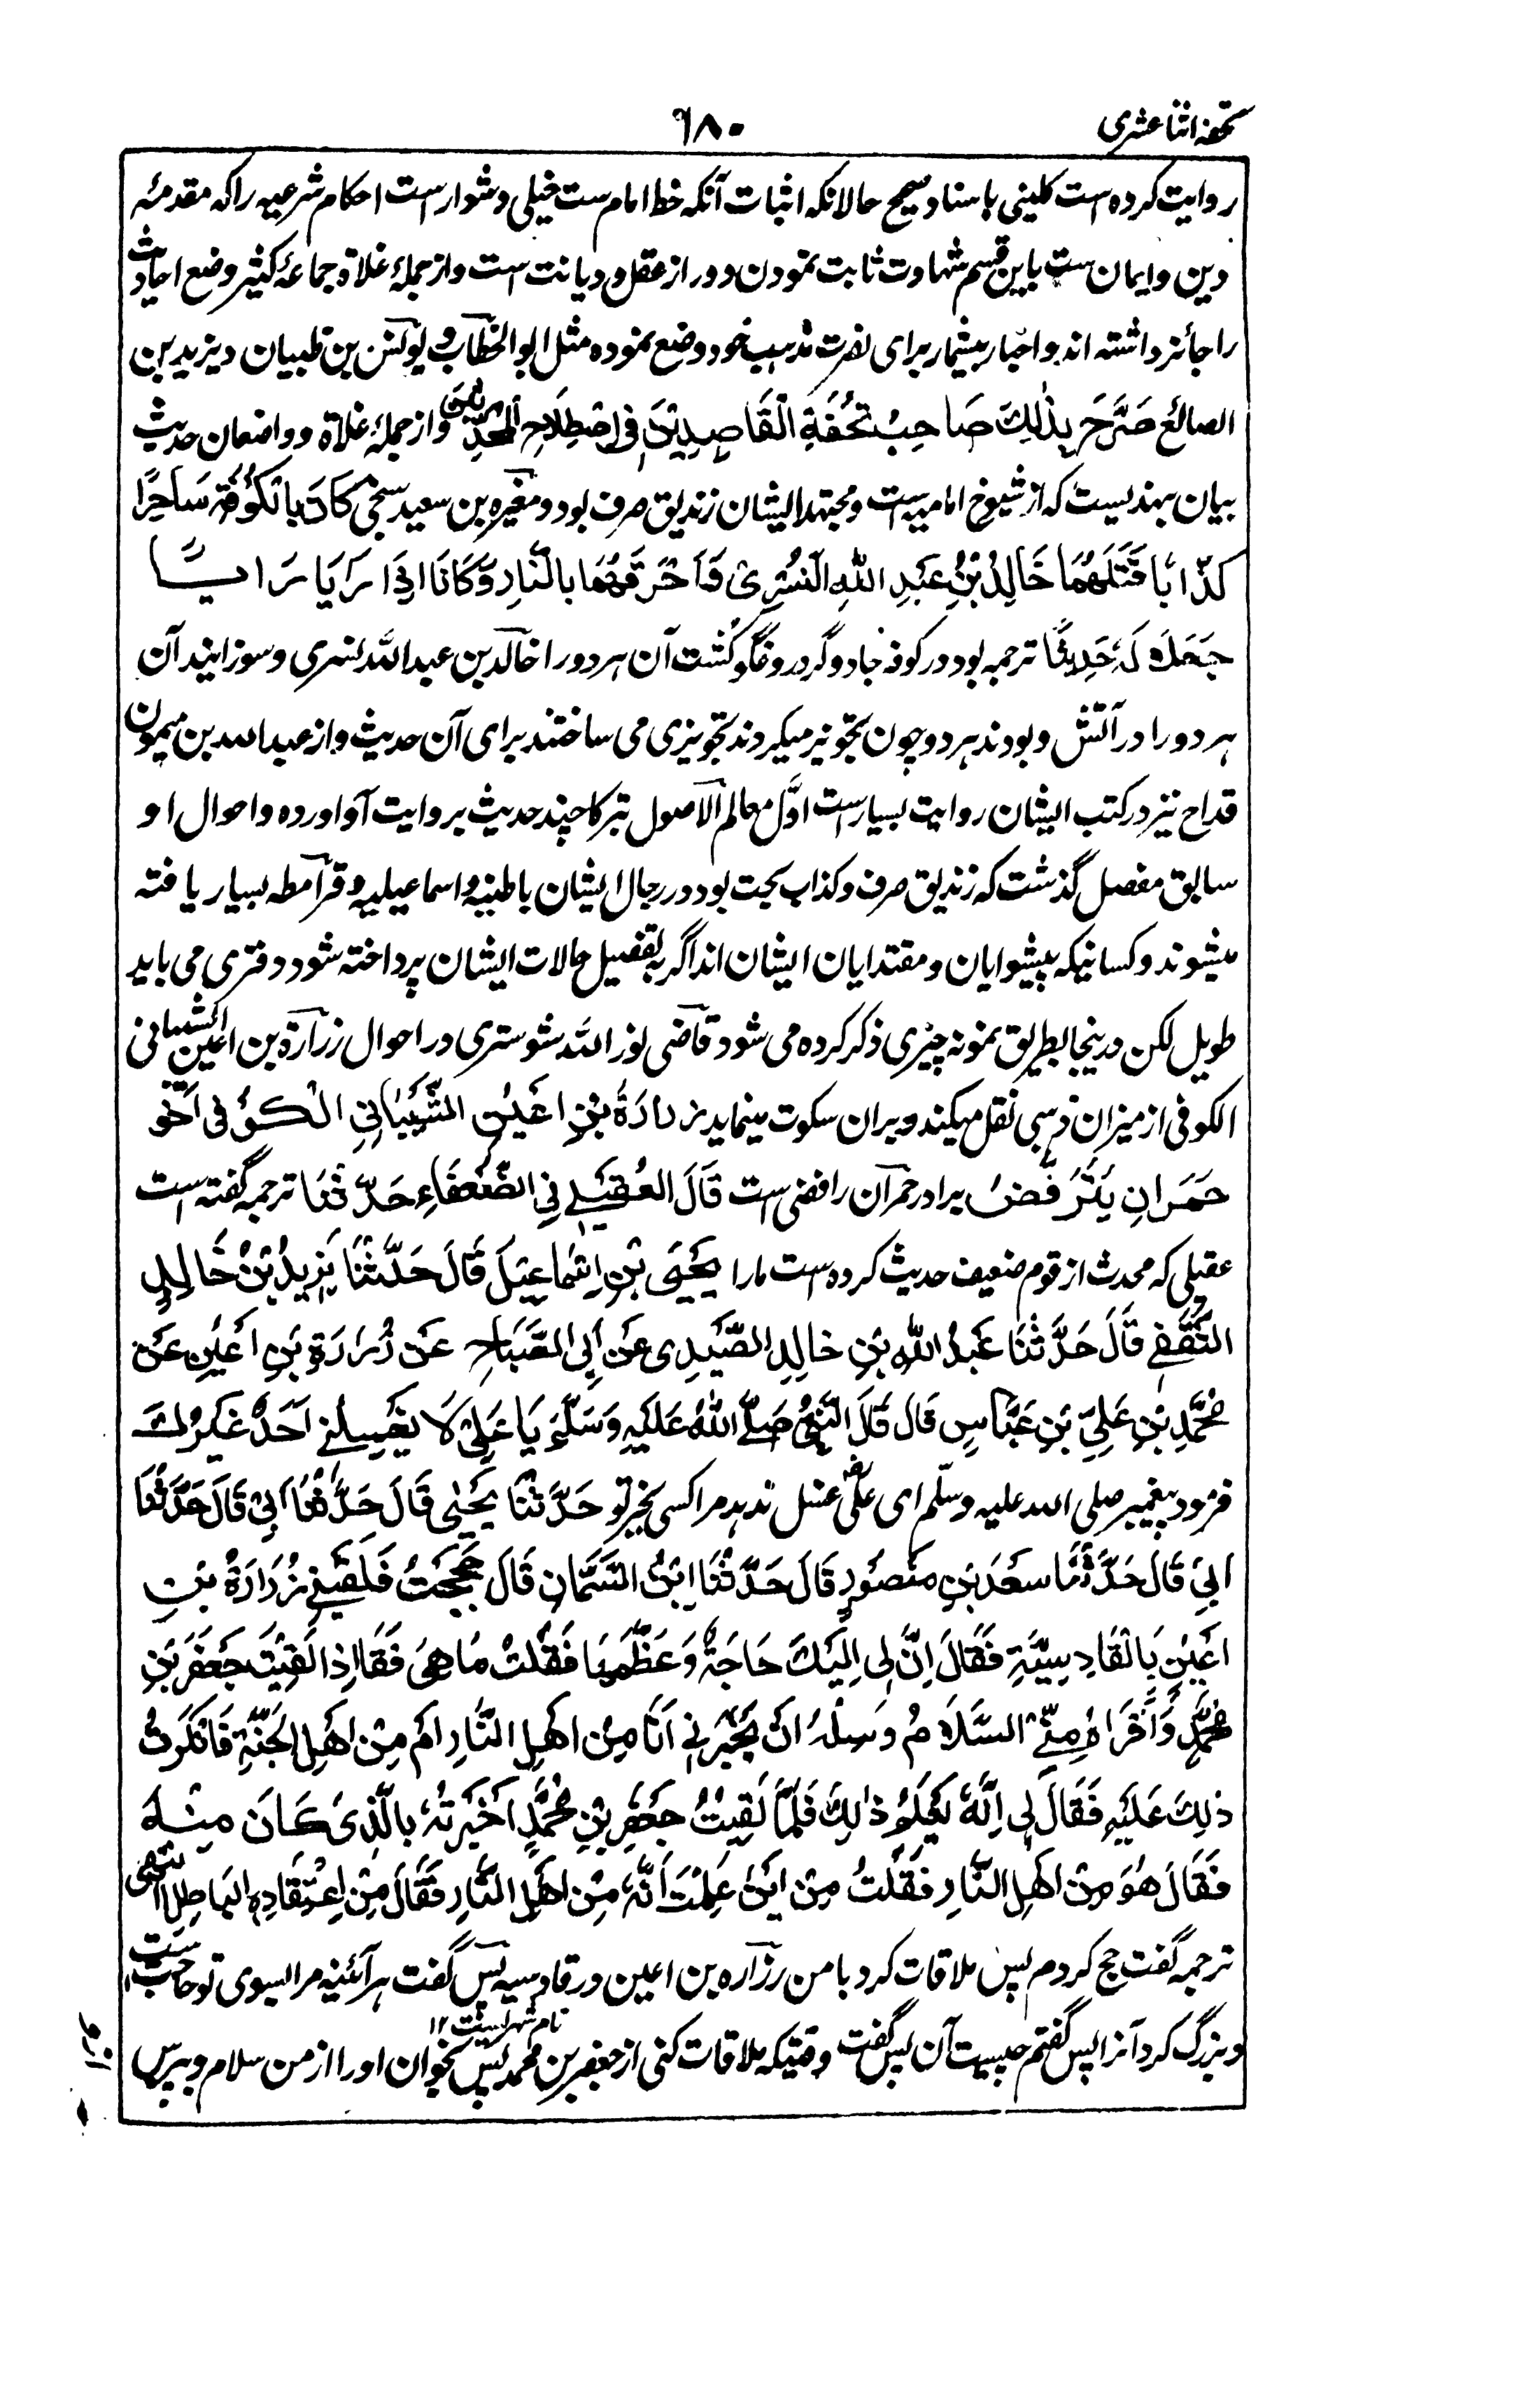 تحفه اثنا عشری ۶۸۰
روایت کرده است کلینی باسناد صحیح حالانکه اثبات آنکه خط امام ست خیلی دشوار ست احکام شرعیه را که مقدمئه
دین و ایمان ست باین قسم شهادت ثابت نمودن دور از عقل و دیانت ست و از جملهٔ غلاة جماعهٔ کثیر وضع احادیث
را جائز داشته اند و اخبار بیشمار برای نصرت مذهب خود وضع نموده مثل ابو الخطاب و یونس بن ظبیان و یزید بن
الصائغ صَرَّحَ بِذٰلِكَ صَاحِبُ تُحْفَةِ الْقَاصِدِیْنَ فِی اصْطِلَاحِ الْمُحَدِّثِیْنَ و از جملهٔ غلاة و واضعان حدیث
بیان مهندیست که از شیوخ امامیه است و مجتهد ایشان زندیق صرف بود و مغیره بن سعید سخی كَانَ بِالْكُوْفَةِ سَاحِرًا
كَذَّابًا قَتَلَهُمَا خَالِدُ بْنُ عَبْدِ اللهِ النَّسْرِیُّ وَاَحْرَقَهُمَا بِالنَّارِ وَكَانَا اِذَا رَایَا رَایًا
جَعَلَا لَهُ حَدِیْثًا ترجمه بود در کوفه جادوگر دروغگو کشت آن هر دو را خالد بن عبد الله نسری و سوزانید آن
هر دو را در آتش و بودند هر دو چون تجویز میکردند تجویزی می ساختند برای آن حدیث و از عبد الله بن میمون
قداح نیز در کتب ایشان روایت بسیار ست اوّل معالم الاصول تبرکا چند حدیث بروایت آو آورده و احوال او
سابق مفصل گذشت که زندیق صرف و کذاب بحت بود و در رجال ایشان باطنیه و اسماعیلیه و قرآمطه بسیار یافته
میشوند و کسانیکه پیشوایان و مقتدایان ایشان اند اگر بتفصیل حالات ایشان پرداخته شود دفتری می باید
طویل لکن درینجا بطریق نمونه چیزی ذکر کرده می شود قاضی نور الله شوستری در احوال زرارة بن اعین الشیبانی
الکوفی از میزان ذهبی نقل میکند و بران سکوت مینماید زُرَارَةُ بْنُ اَعْیَنَ الشَّیْبَانِیُّ الْكُوْفِی اَخُو
حَمْرَانِ یَتَرَفَّضُ برادر حمرآن رافضی ست قَالَ الْعُقَیْلِی فِی الضُّعَفَاءِ حَدَّثَنَا ترجمه گفته است
عقیلی که محدث از قوم ضعیف حدیث کرده است مارا یَحْیَى بْنِ اِسْمَاعِیْلَ قَالَ حَدَّثَنَا یَزِیْدُ بْنُ خَالِدِ
الثَّقَفِی قَالَ حَدَّثَنَا عَبْدُ اللهِ بْنِ خَالِدِ الصَّیْدِی عَنْ اَبِی الصَّبَاحِ عَنْ زُرَارَةِ بْنِ اَعْیَنِ عَنْ
مُحَمَّدِ بْنِ عَلِیِّ بْنِ عَبَّاسِ قَالَ قَالَ النَّبِیُّ صَلَّى اللهُ عَلَیْهِ وَسَلَّمَ یَا عَلِیُّ لَا یَغْسِلُنِی اَحَدٌ غَیْرُكَ
فرمود پیغمبر صلی الله علیه وسلم ای علیؓ غسل ندهد مرا کسی بغیر تو حَدَّثَنَا یَحْیٰى قَالَ حَدَّثَنَا اَبِیْ قَالَ حَدَّثَنَا
اَبِی قَالَ حَدَّثَنَا سَعْدَ بْنِ مَنْصُوْرٍ قَالَ حَدَّثَنَا ابْنُ السَّمَّانِ قَالَ حَجَجْتُ فَلَقِیَنِیْ زُرَارَةُ بْنِ
اَعْیَنِ بِالْقَادِسِیَّةِ فَقَالَ اِنَّ لِی اِلَیْكَ حَاجَةً وَعَظَّمَهَا فَقُلْتُ مَا هِیَ فَقَالَ اِذَا لَقِیْتَ جَعْفَرَ بْنِ
مُحَمَّدٍ فَاَقْرَاهُ مِنِّی السَّلَامُ وَسَلْهُ اَنْ یُخْبِرَنِی اَنَا مِنْ اَهْلِ النَّارِ اَمْ مِنْ اَهْلِ الْجَنَّةِ فَاَنْكَرْتُ
ذٰلِكَ عَلَیْهِ فَقَالَ لِی اِنَّهُ یَعْلَمُ ذٰلِكَ فَلَمَّا لَقِیْتُ جَعْفَرِ بْنِ مُحَمَّدٍ اَخْبَرْتُهُ بِالَّذِیْ كَانَ مِنْهُ
فَقَالَ هُوَ مِنْ اَهْلِ النَّارِ فَقُلْتُ مِنْ اَیْنَ عَلِمْتَ اَنَّهُ مِنْ اَهْلِ النَّارِ فَقَالَ مِنْ اِعْتِقَادِهِ الْبَاطِلِ انتهى
ترجمه گفت حج کردم پس ملاقات کرد با من زرآره بن اعین در قادسیه پس گفت هر آئینه مرا بسوی تو حاجت ست
نام شهریست ۱۲
و بزرگ کرد آنرا پس گفتم چیست آن پس گفت وقتیکه ملاقات کنی از جعفر بن محمد پس بخوان او را از من سلام و بپرس